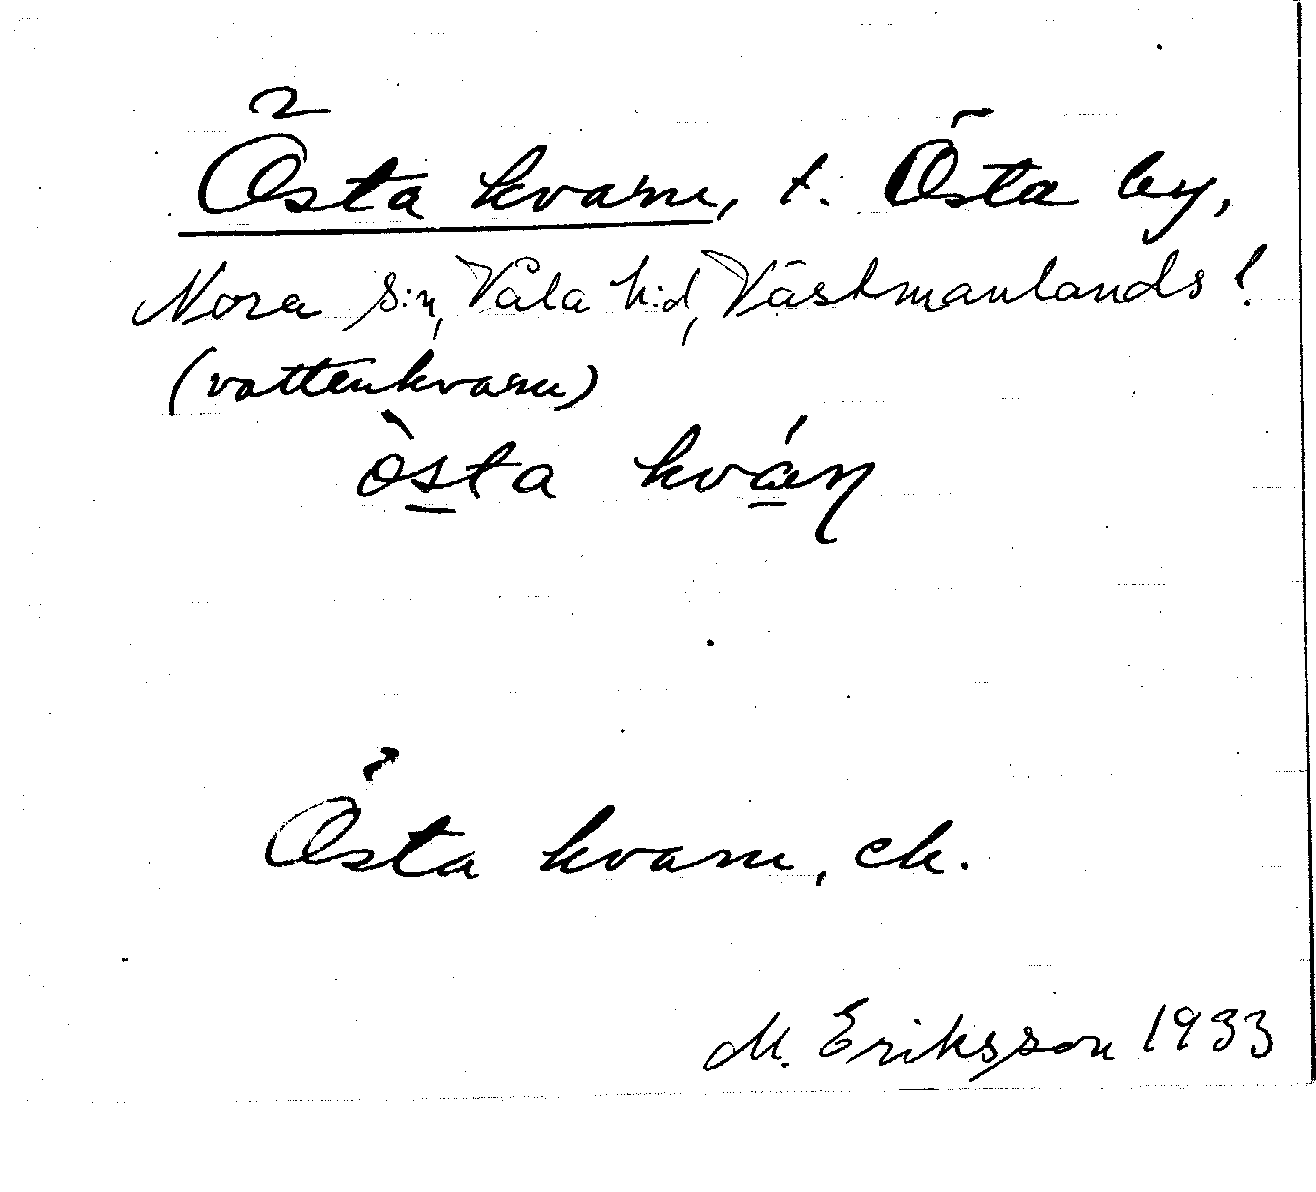 Östa kvarn, t. Östa by,
Nora s:n, Våla h:d, Västmanlands l.
(vattenkvarn)
òsta kváɳ
Östa kvarn, ek.
M. Eriksson 1933